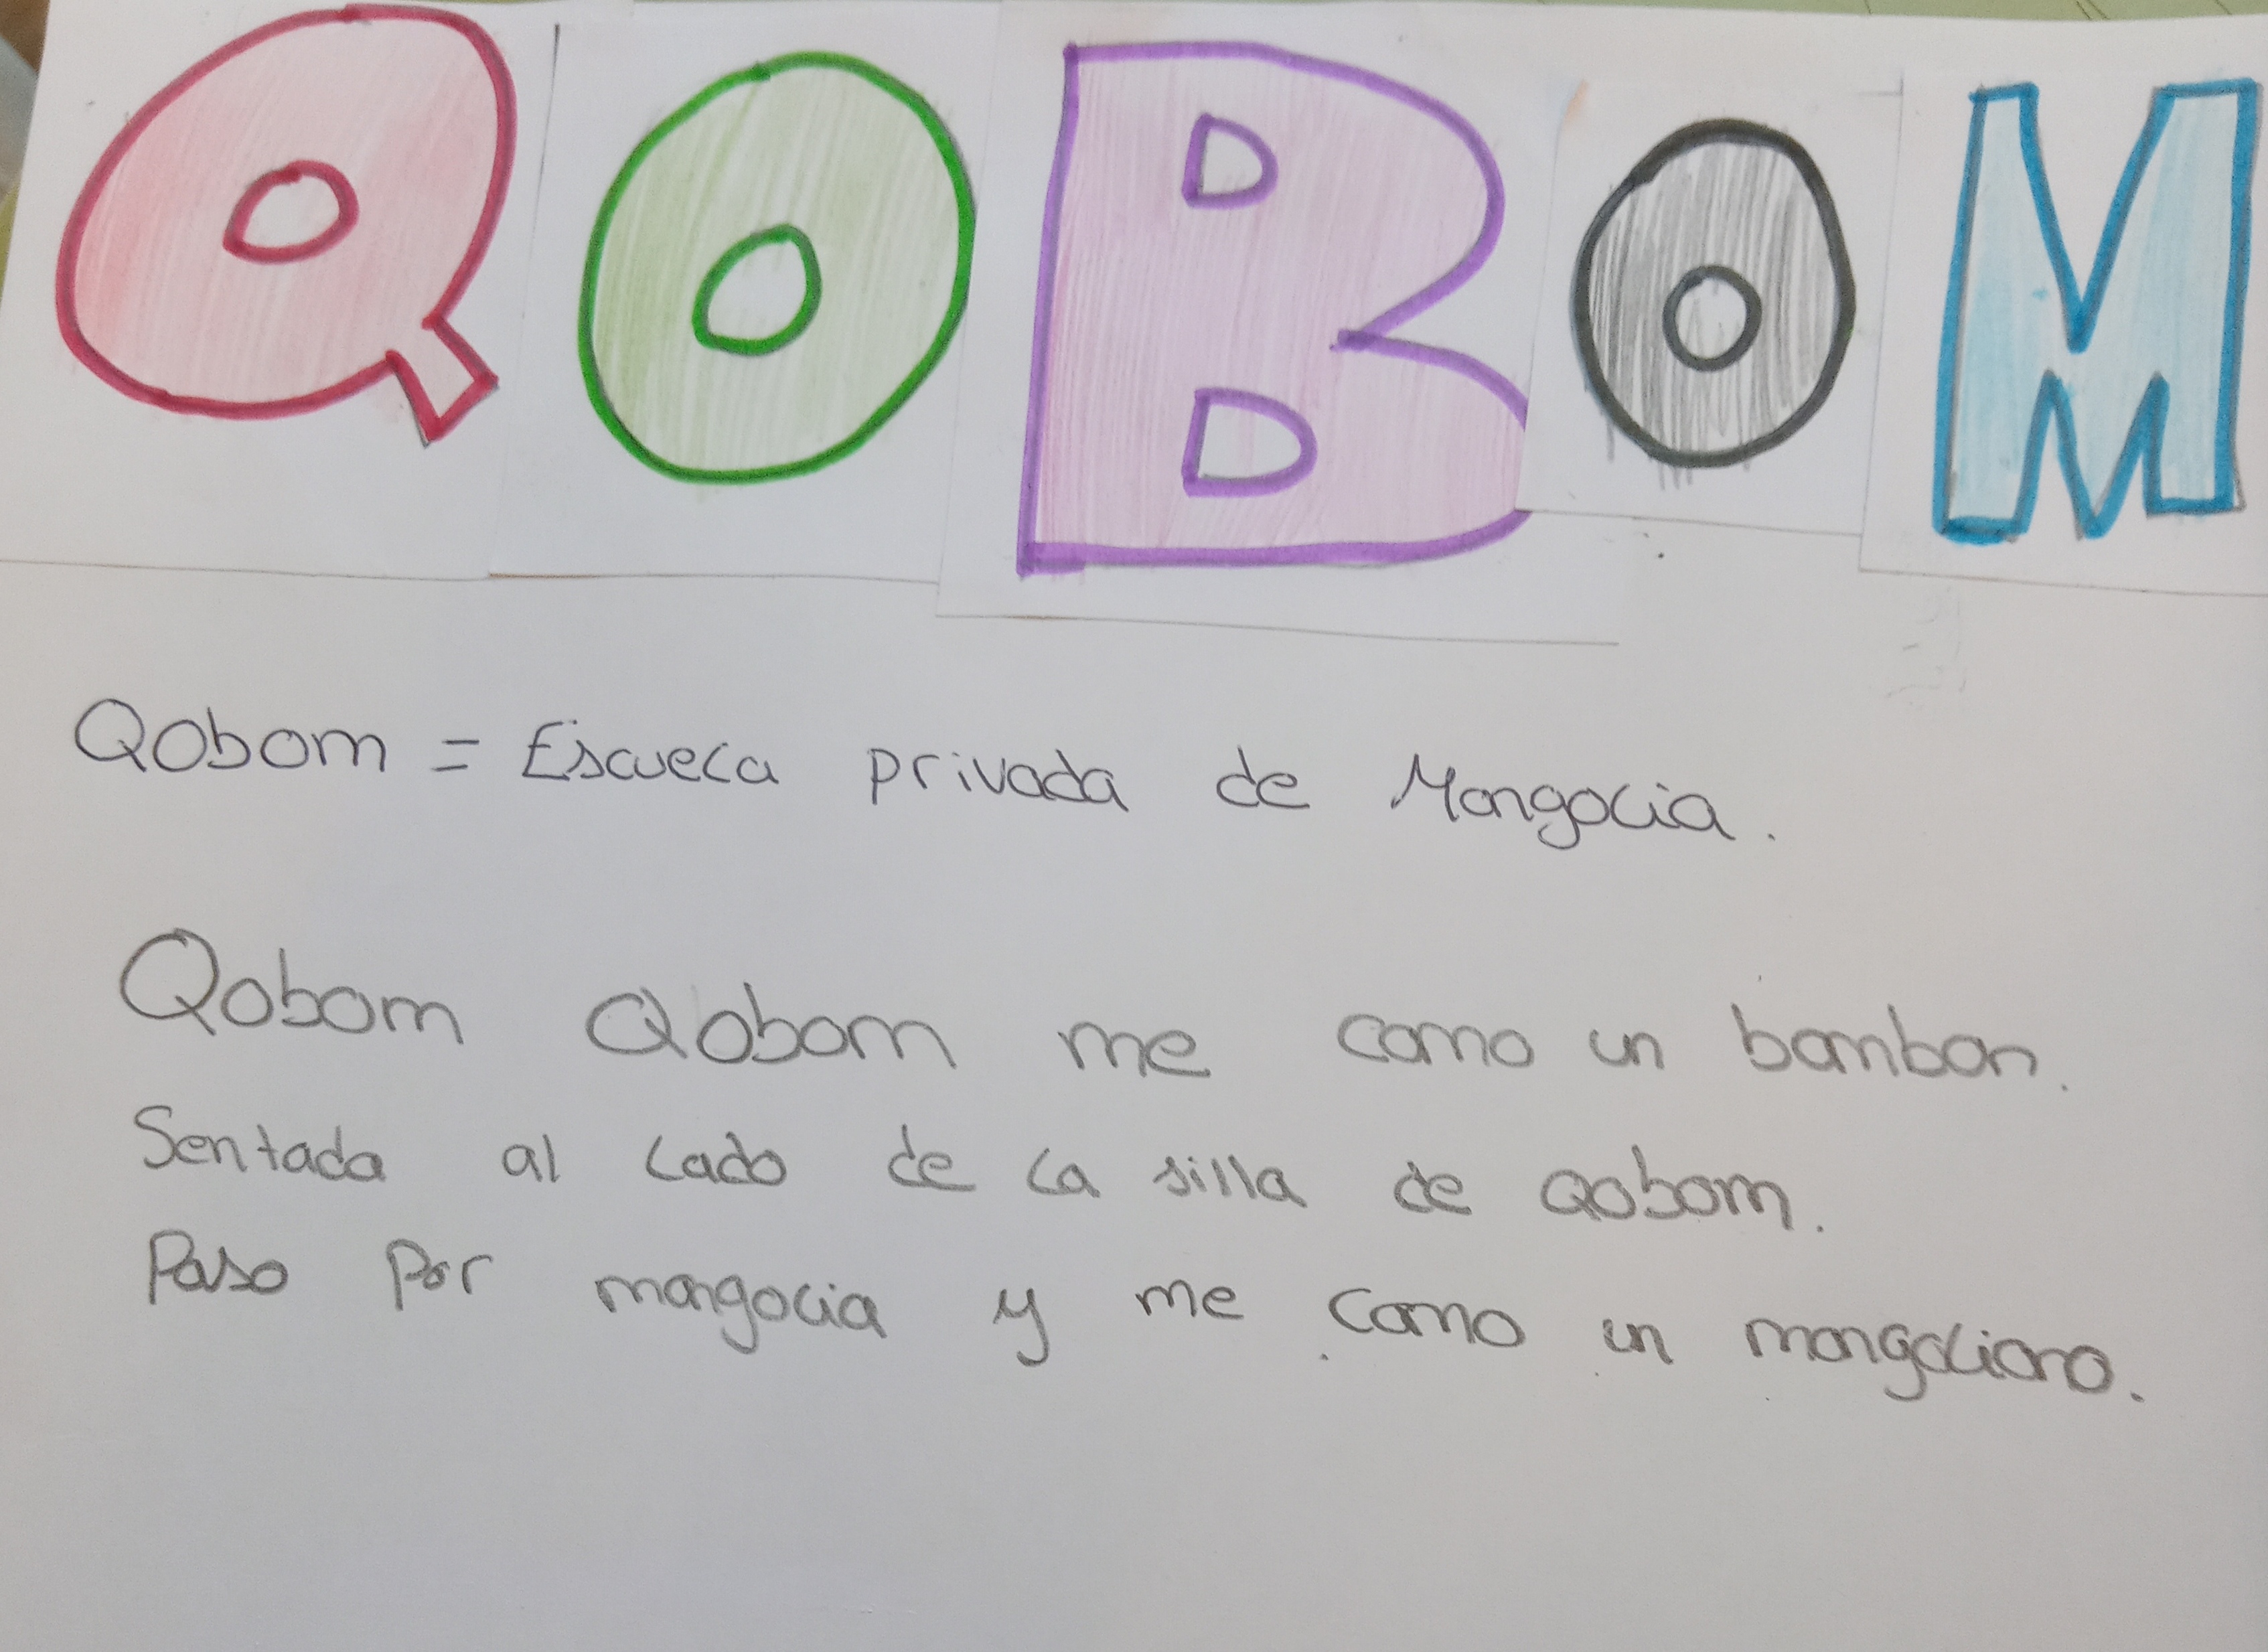 QOBOM
Qobom = Escuela privada de Mongolia.
Qobom Qobom me como un bombon.
Sentada al lado de la silla de Qobom.
Paso por mongolia y me como un mongoliano.